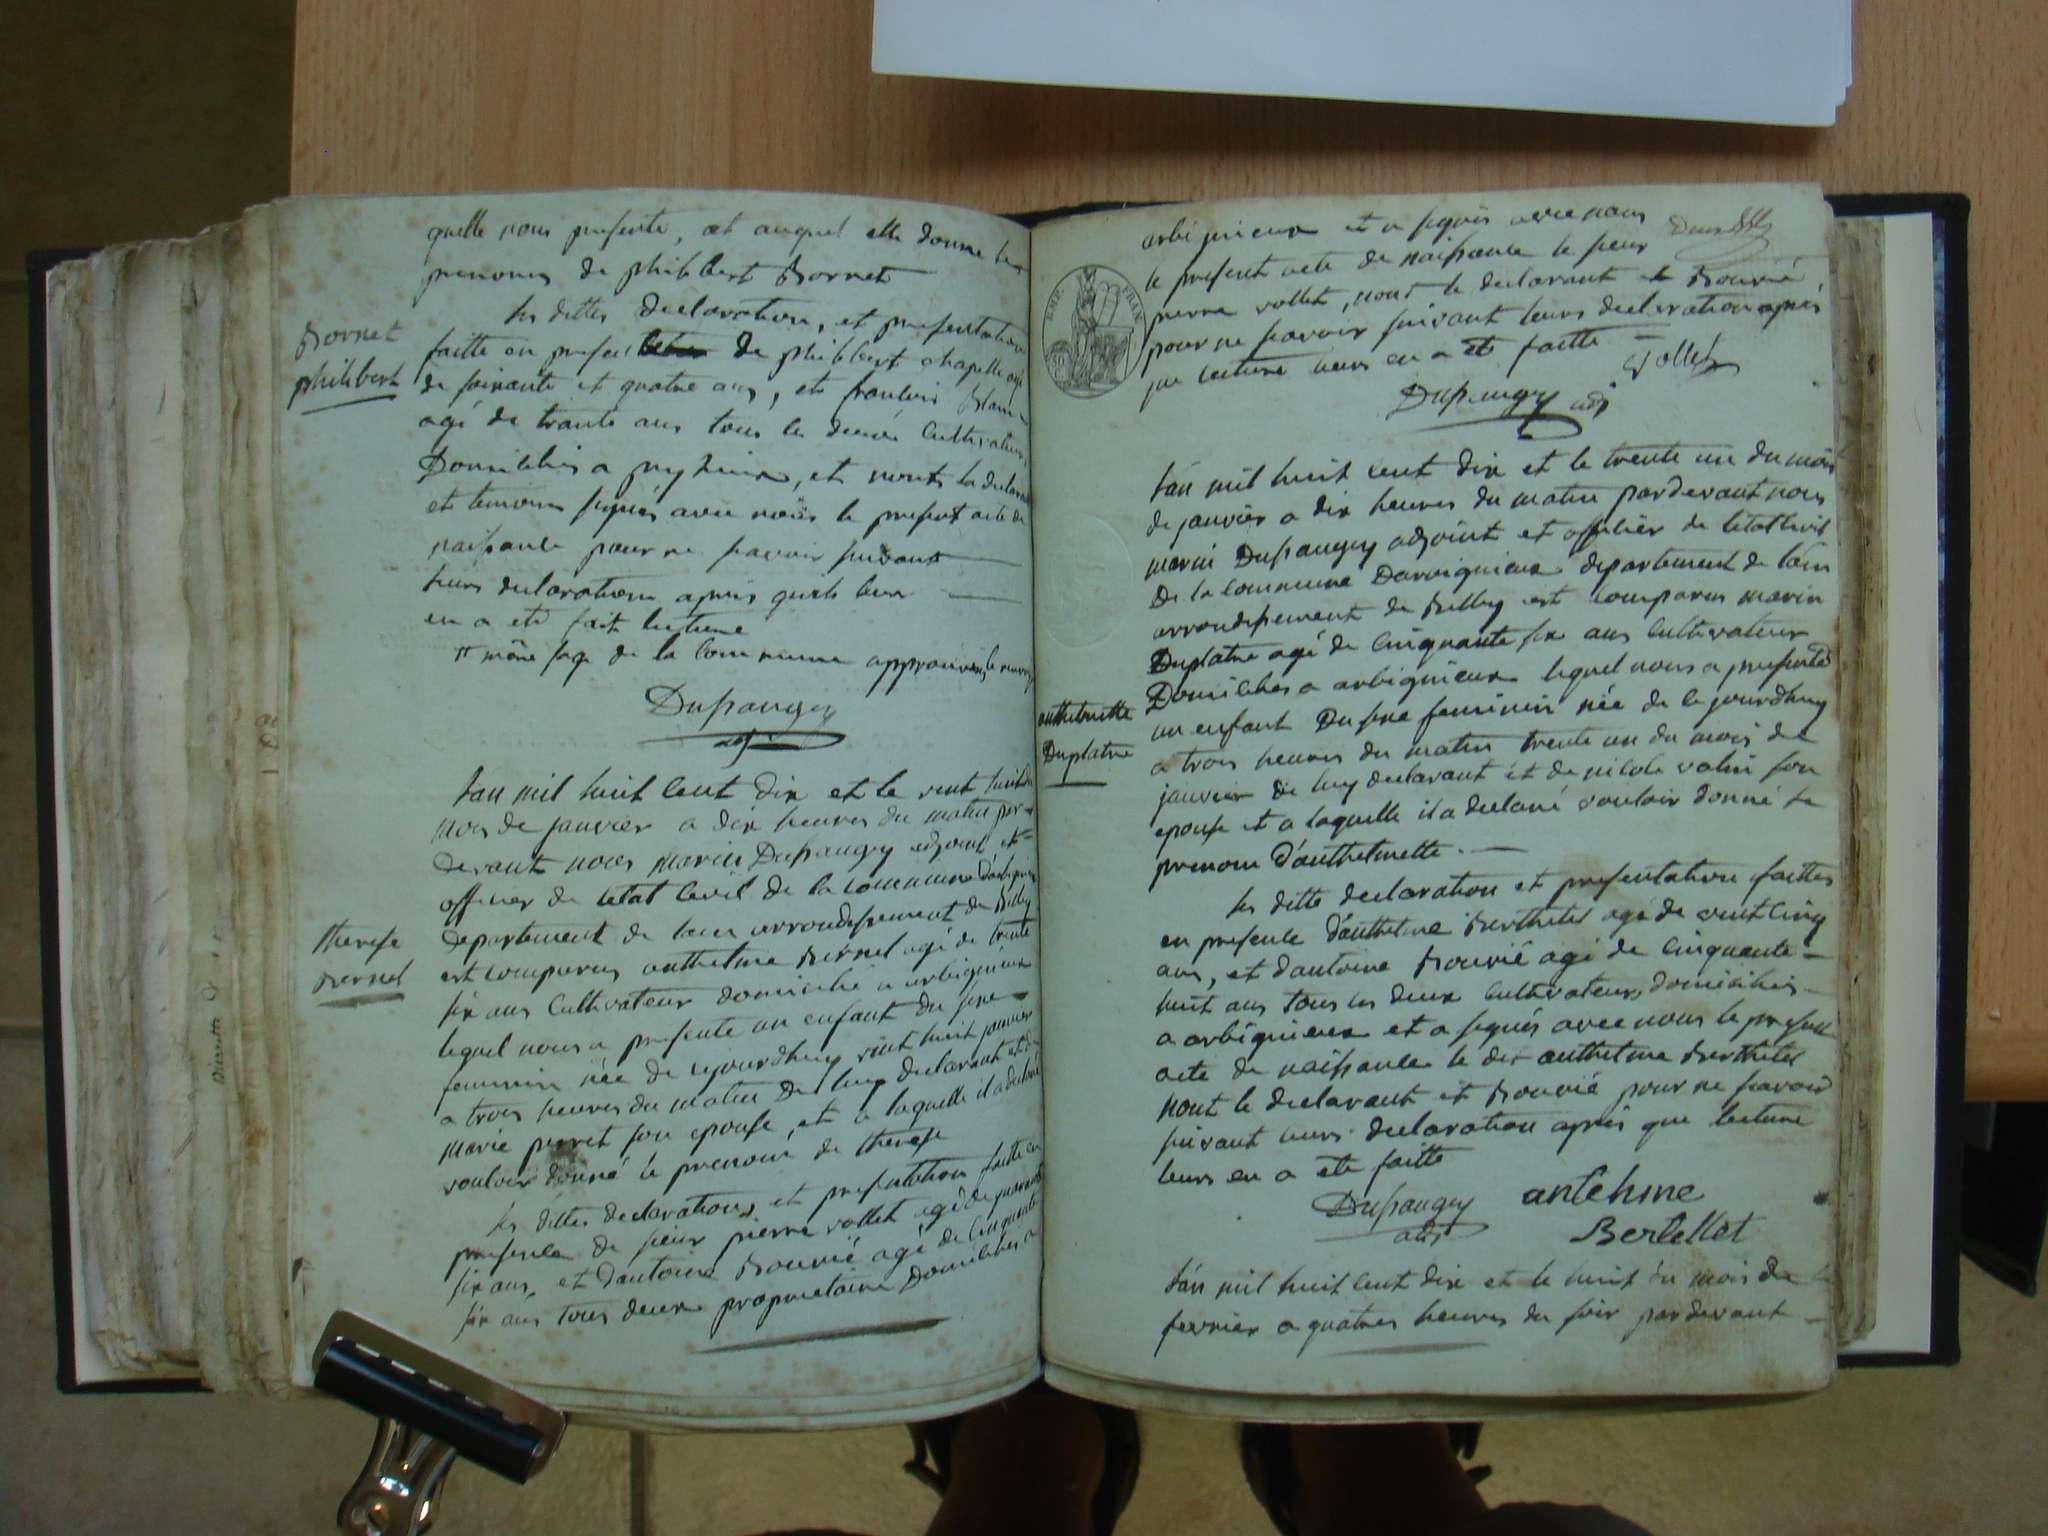 quelle nous presente, et auquel elle donne les
prenoms de philibert Bornet
Bornet
philibert
les dittes declaration, et presentation
faitte en presence de philibert chapelle agé
de soixante et quatre ans, et francois Blanc
agé de trante ans tous les deux cultivateurs
Domiciliés a peyzieu, et n'ont la declarante
et temoins signés avec nous le present acte de
naissance pour ne scavoir suivant
leurs declaration apres quils leur
en a eté fait lecture
même page de la commune approuvés le renvoy
Dupaugey
adj
l'an mil huit cent dix et le vint huit du
mois de janvier a dix heures du matin par
devant nous marin Dupaugey adjoint et
officier de letat civil de la commune d'arbignieu
departement de lain arrondissement de Belley
therese
Bernel
est comparus anthelme Bernel agé de trente
six ans cultivateur domicilié a arbignieux
lequel nous a presente un enfant du sexe
feminin née de cejourdhuy vint huit janvier
a trois heures du matin De luy declarant et de
marie perret son epouse, et a laquelle il a declaré
vouloir donné le prenom de therese
les dittes declarations et presentation faitte en
presence de sieur pierre vollet agé de quarante
six ans, et d'antoine Bouvié agé de cinquante
six ans tous deux proprietaire Domiciliés a
1801
arbignieux et a signés avec nous
le present acte de naissance le sieur
pierre vollet, nont le declarant et Bouvié
pour ne scavoir suivant leurs declaration après
que lecture leurs en a eté faitte
EMP. FRAN.
vollet
Dupaugey adj
l'an mil huit cent dix et le trente un du mois
de janvier a dix heures du matin pardevant nous
marin Dupaugey adjoint et officier de letat civil
De la commune Darbignieux departement de lain
arrondissement de Belley est comparus marin
Duplatre agé de cinquante six ans cultivateur
Domiciliés a arbignieux lequel nous a presenté
anthelmette
Duplatre
un enfant Du sexe feminin née de ce jourdhuy
a trois heures du matin trente un du mois de
janvier de luy declarant et de nicole valin son
epouse et a laquelle il a declaré vouloir donné le
prenom d'anthelmette.
les ditte declaration et presentation faittes
en presence d'anthelme Berthelet agé de vint cinq
ans, et dantoine Bouvié agé de cinquante
huit ans tous les deux cultivateurs domiciliés
a arbignieux et a signés avec nous le present
acte de naissance le dit anthelme Berthelet
nont le declarant et Bouvié pour ne scavoir
suivant leurs declaration après que lecture
leurs en a eté faitte
Dupaugey antehme
adj Bertellet
l'an mil huit cent dix et le huit du mois de
fevrier a quatres heures du soir pardevant